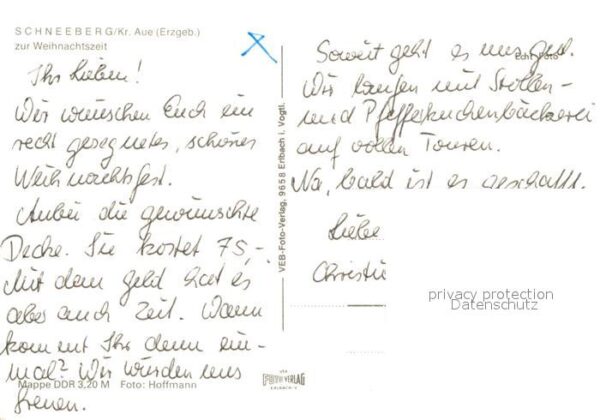 SCHNEEBERG/Kr. Aue (Erzgeb.)
zur Weihnachtszeit
Ihr Lieben!
Wir wünschen Euch ein
recht gesegnetes, schönes
Weihnachtsfest.
Anbei die gewünschte
Decke. Sie kostet 75,-.
Mit dem Geld hat es
aber auch Zeit. Wann
kommt Ihr denn ein-
mal? Wir würden uns
freuen.
Mappe DDR 3,20 M Foto: Hoffmann
VEB-Foto-Verlag, 9658 Erlbach i. Vogtl.
FOTO VERLAG
Echt Foto
Soweit geht es uns gut.
Wir laufen mit Stollen-
und Pfefferkuchenbäckerei
auf vollen Touren.
Na, bald ist es geschafft.
Liebe
Christi
privacy protection
Datenschutz